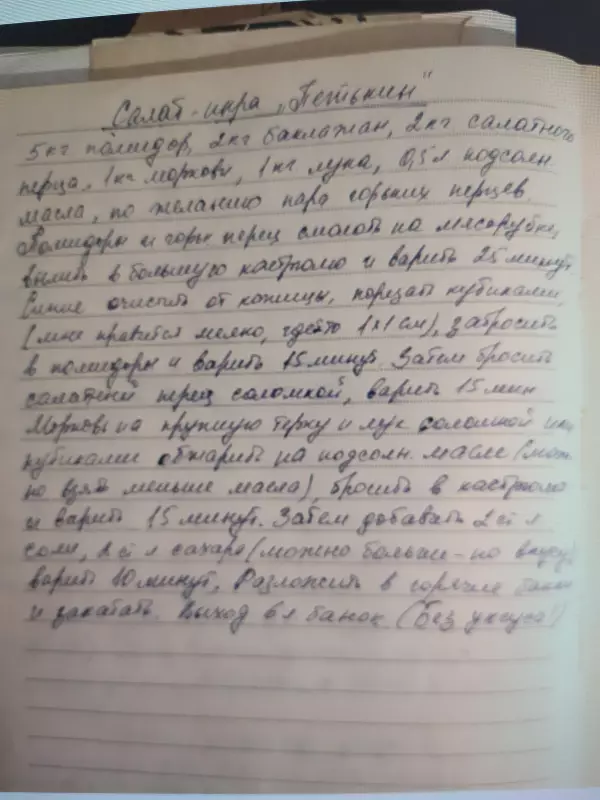 Салат-икра "Петькин"
5кг помидор, 2кг баклажан, 2кг салатного
перца, 1кг моркови, 1кг лука, 0,5л подсолн
масла, по желанию пара горьких перцев.
Помидоры и горьк перец смолоть на мясорубке,
вылить в большую кастрюлю и варить 25 минут
Синие очистить от кожицы, порезать кубиками,
(мне нравится мелко, где-то 1х1см), забросить
в помидоры и варить 15 минут. Затем бросить
салатный перец соломкой, варить 15 мин
Морковь на крупную терку и лук соломкой или
кубиками обжарить на подсолн. масле (мож-
но взять меньше масла), бросить в кастрюлю
и варить 15 минут. Затем добавать 2 ст л
соли, ст л сахара (можно больше - по вкусу)
варить 10 минут, Разложить в горячие банки
и закатать. Выход л банок (без уксуса!)